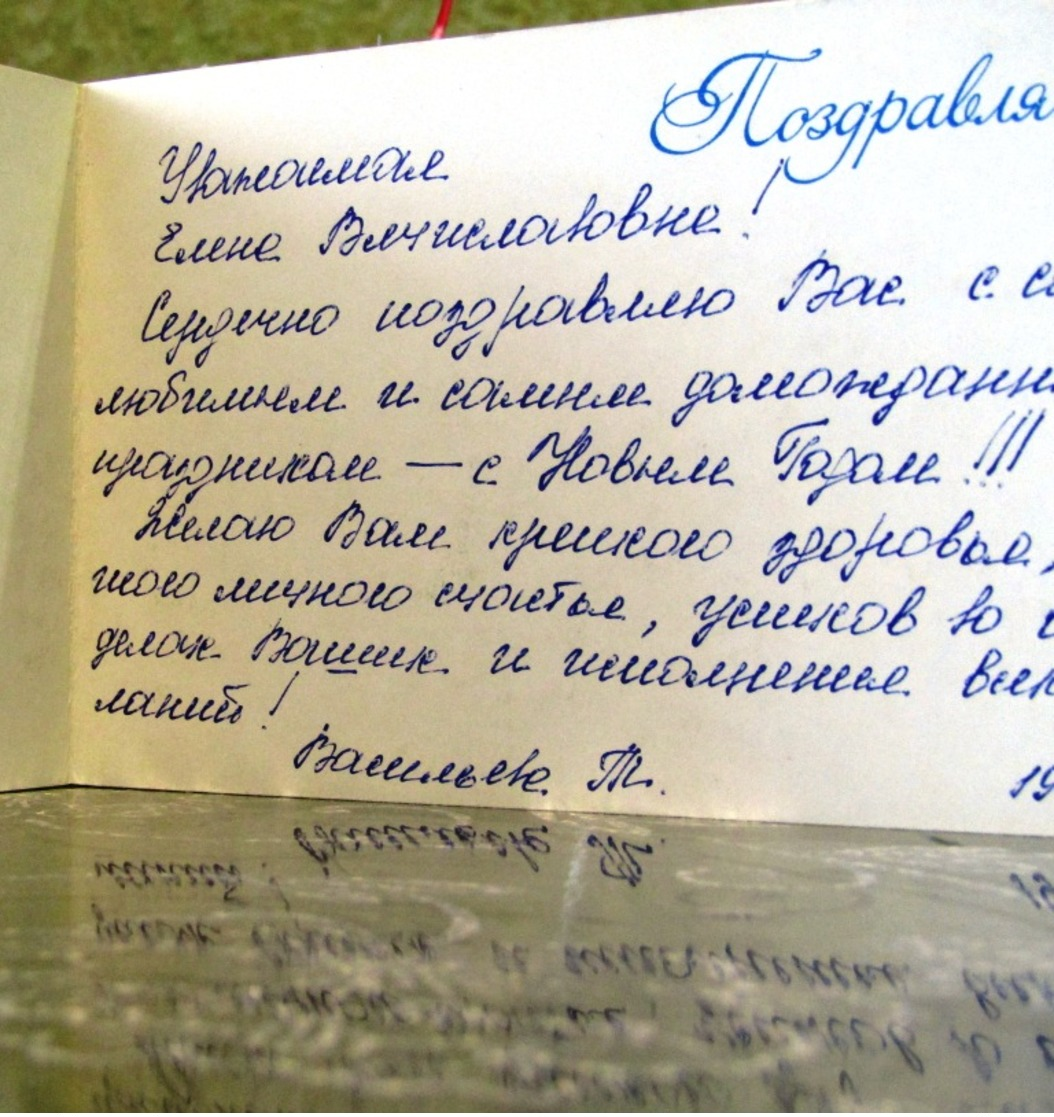 Поздравля
Уважаемая
Елена Вячиславовна!
Сердечно поздравляю Вас с са
любимым и самым долгожданн
праздником — с Новым Годом!!!
Желаю Вам крепкого здоровья,
шого личного счастья, успехов во
делах Ваших и исполнения всех
ланий!
Васильев Т.
19